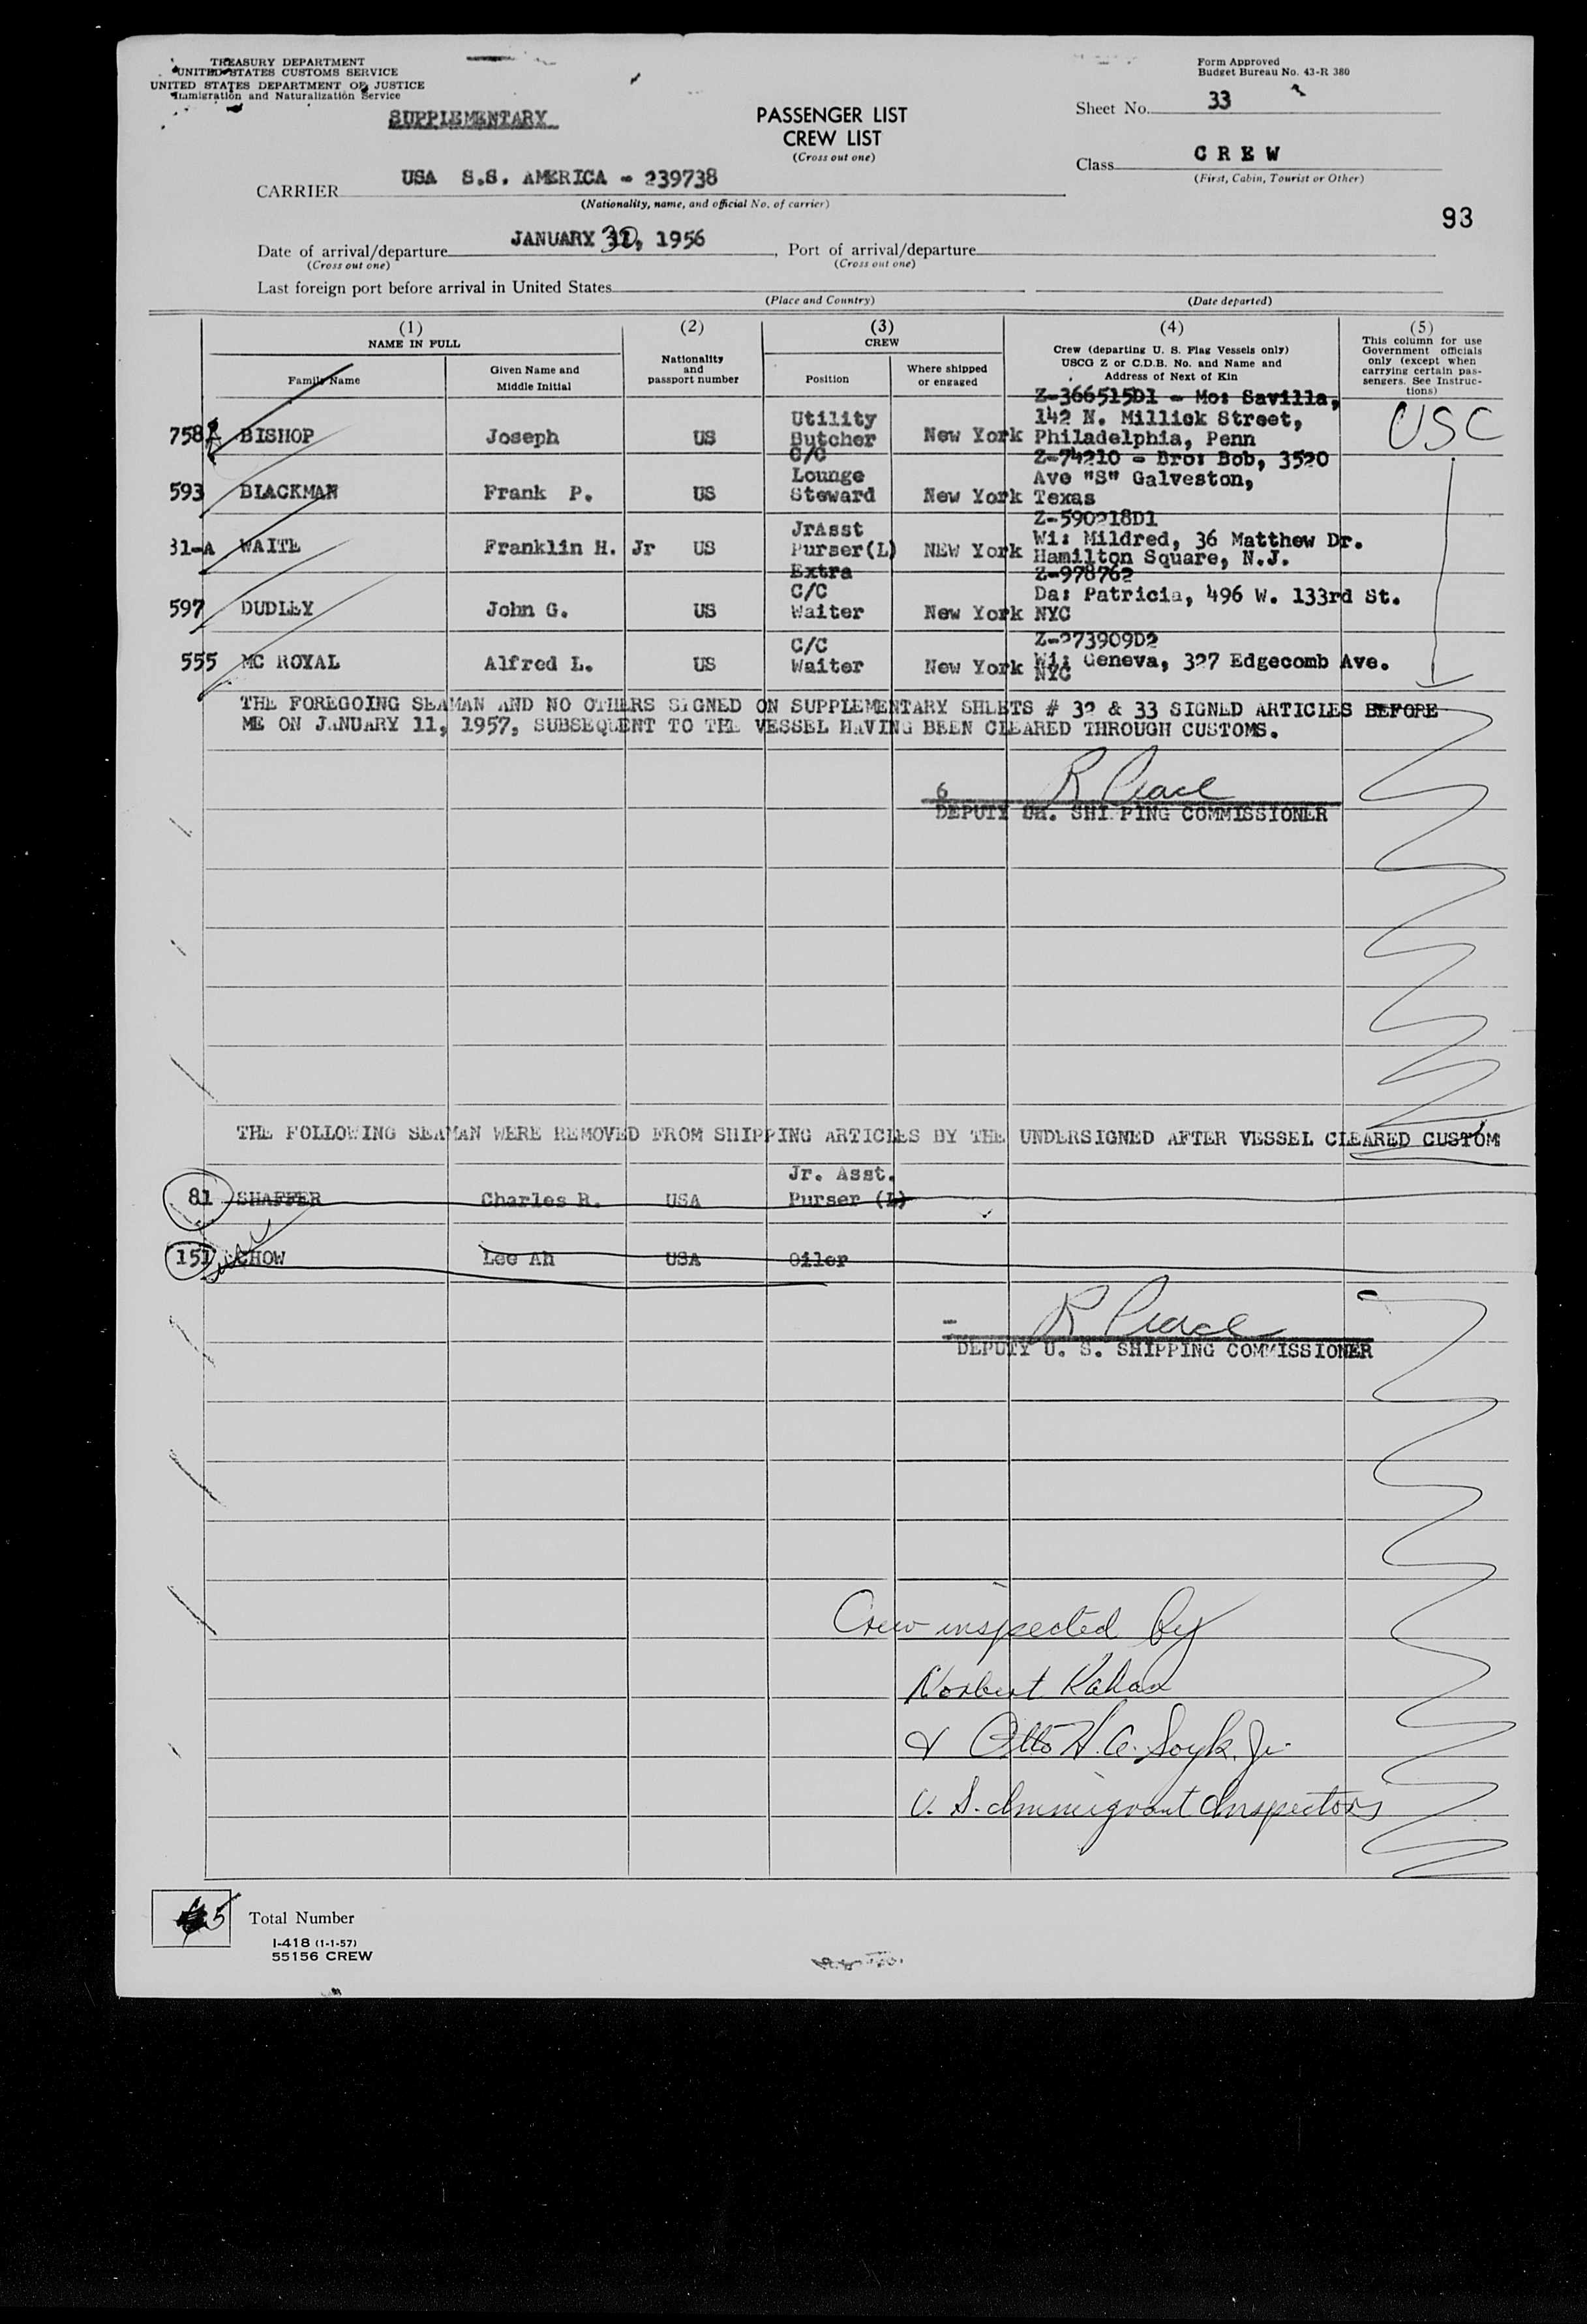 TREASURY DEPARTMENT
UNITED STATES CUSTOMS SERVICE
UNITED STATES DEPARTMENT OF JUSTICE
Immigration and Naturalization Service
SUPPLEMENTARY
PASSENGER LIST
CREW LIST
(Cross out one)
Form Approved
Budget Bureau No. 43-R 380
Sheet No. 33
Class CREW
(First, Cabin, Tourist or Other)
CARRIER USA S.S. AMERICA - 239738
(Nationality, name, and official No. of carrier)
93
Date of arrival/departure JANUARY 30, 1956, Port of arrival/departure
(Cross out one) (Cross out one)
Last foreign port before arrival in United States
(Place and Country) (Date departed)
(1) NAME IN FULL
Family Name
Given Name and Middle Initial
(2) Nationality and passport number
(3) CREW
Position
Where shipped or engaged
(4) Crew (departing U. S. Flag Vessels only)
USCG Z or C.D.B. No. and Name and
Address of Next of Kin
(5) This column for use
Government officials
only (except when
carrying certain pas-
sengers. See Instruc-
tions)
Z-366515D1 - Mo: Savilla,
Utility 142 N. Millick Street,
758 BISHOP Joseph US Butcher New York Philadelphia, Penn USC
C/C Z-74210 - Bro: Bob, 3520
Lounge Ave "S" Galveston,
593 BLACKMAN Frank P. US Steward New York Texas
Z-590218D1
JrAsst Wi: Mildred, 36 Matthew Dr.
31-A WAITE Franklin H. Jr US Purser(L) NEW York Hamilton Square, N.J.
Extra Z-978762
C/C Da: Patricia, 496 W. 133rd St.
597 DUDLEY John G. US Waiter New York NYC
C/C Z-273909D2
555 MC ROYAL Alfred L. US Waiter New York Wi: Geneva, 327 Edgecomb Ave.
NYC
THE FOREGOING SEAMAN AND NO OTHERS SIGNED ON SUPPLEMENTARY SHEETS # 32 & 33 SIGNED ARTICLES BEFORE
ME ON JANUARY 11, 1957, SUBSEQUENT TO THE VESSEL HAVING BEEN CLEARED THROUGH CUSTOMS.
6 R Pearl
DEPUTY SH. SHI PING COMMISSIONER
THE FOLLOWING SEAMAN WERE REMOVED FROM SHIPPING ARTICLES BY THE UNDERSIGNED AFTER VESSEL CLEARED CUSTOM
Jr. Asst.
81 SHAFFER Charles R. USA Purser (L)
151 CHOW Lee Ah USA Oiler
R Pearl
DEPUTY U. S. SHIPPING COMMISSIONER
Crew inspected by
Norbert Kahan
& Otto H. C. Soyk. Jr.
U. S. Immigrant Inspectors
5 Total Number
I-418 (1-1-57)
55156 CREW